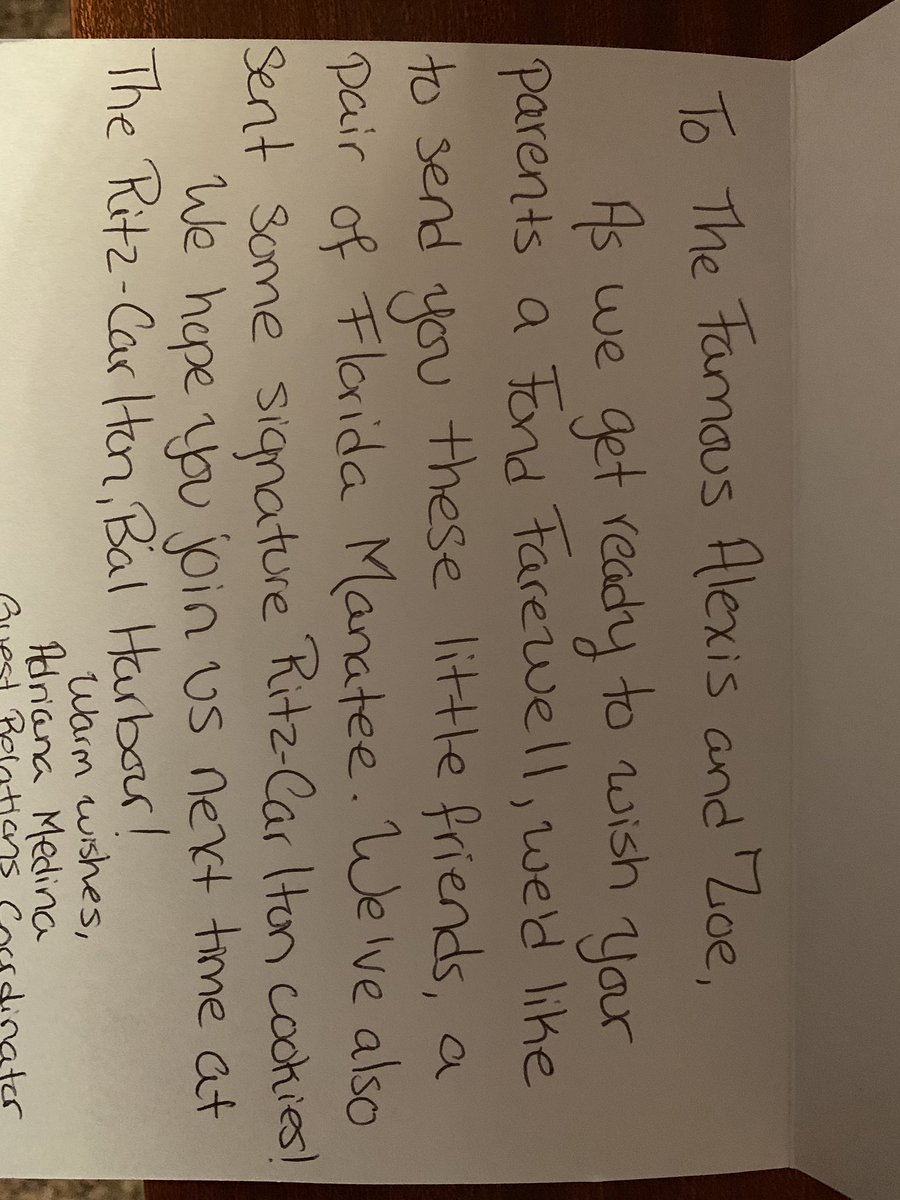 To The Famous Alexis and Zoe,
As we get ready to wish your
parents a fond farewell, we'd like
to send you these little friends, a
pair of Florida Manatee. We've also
sent some signature Ritz-Carlton cookies!
We hope you join us next time at
The Ritz-Carlton, Bal Harbour!
Warm wishes,
Adriana Medina
Guest Relations Coordinator